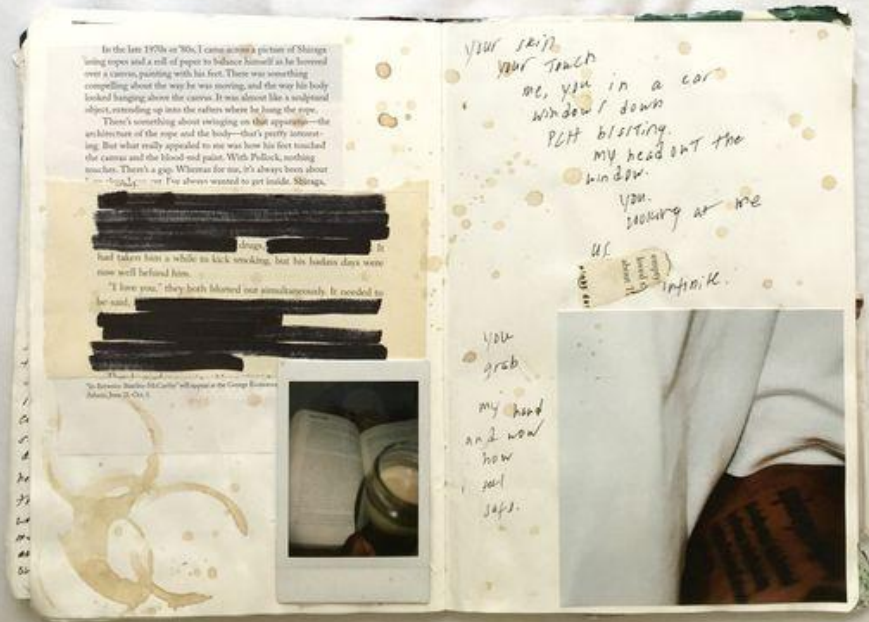 In the late 1970s or '80s, I came across a picture of Shiraga
using ropes and a roll of paper to balance himself as he hovered
over a canvas, painting with his feet. There was something
compelling about the way he was moving, and the way his body
looked hanging above the canvas. It was almost like a sculptural
object, extending up into the rafters where he hung the rope.
There's something about swinging on that apparatus—the
architecture of the rope and the body—that's pretty interest-
ing. But what really appealed to me was how his feet touched
the canvas and the blood-red paint. With Pollock, nothing
touches. There's a gap. Whereas for me, it's always been about
I've always wanted to get inside. Shiraga,
drugs, It
had taken him a while to kick smoking, but his badass days were
now well behind him.
"I love you," they both blurted out simultaneously. It needed to
be said,
will appear at the George Economou
Athens, June 21–Oct. 1.
your skin
your touch
me, you in a car
windows down
PCH blasting.
my head out the
window.
you.
looking at me
us
infinite.
you
grab
my hand
and wow
how
feel
safe.